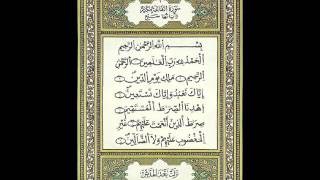 سورة الفاتحة مكية
وآياتها سبع
بِسْمِ اللَّهِ الرَّحْمَٰنِ الرَّحِيمِ
الْحَمْدُ لِلَّهِ رَبِّ الْعَٰلَمِينَ الرَّحْمَٰنِ
الرَّحِيمِ مَٰلِكِ يَوْمِ الدِّينِ
إِيَّاكَ نَعْبُدُ وَإِيَّاكَ نَسْتَعِينُ
اهْدِنَا الصِّرَٰطَ الْمُسْتَقِيمَ
صِرَٰطَ الَّذِينَ أَنْعَمْتَ عَلَيْهِمْ غَيْرِ
الْمَغْضُوبِ عَلَيْهِمْ وَلَا الضَّالِّينَ
نزلت بعد المدثر